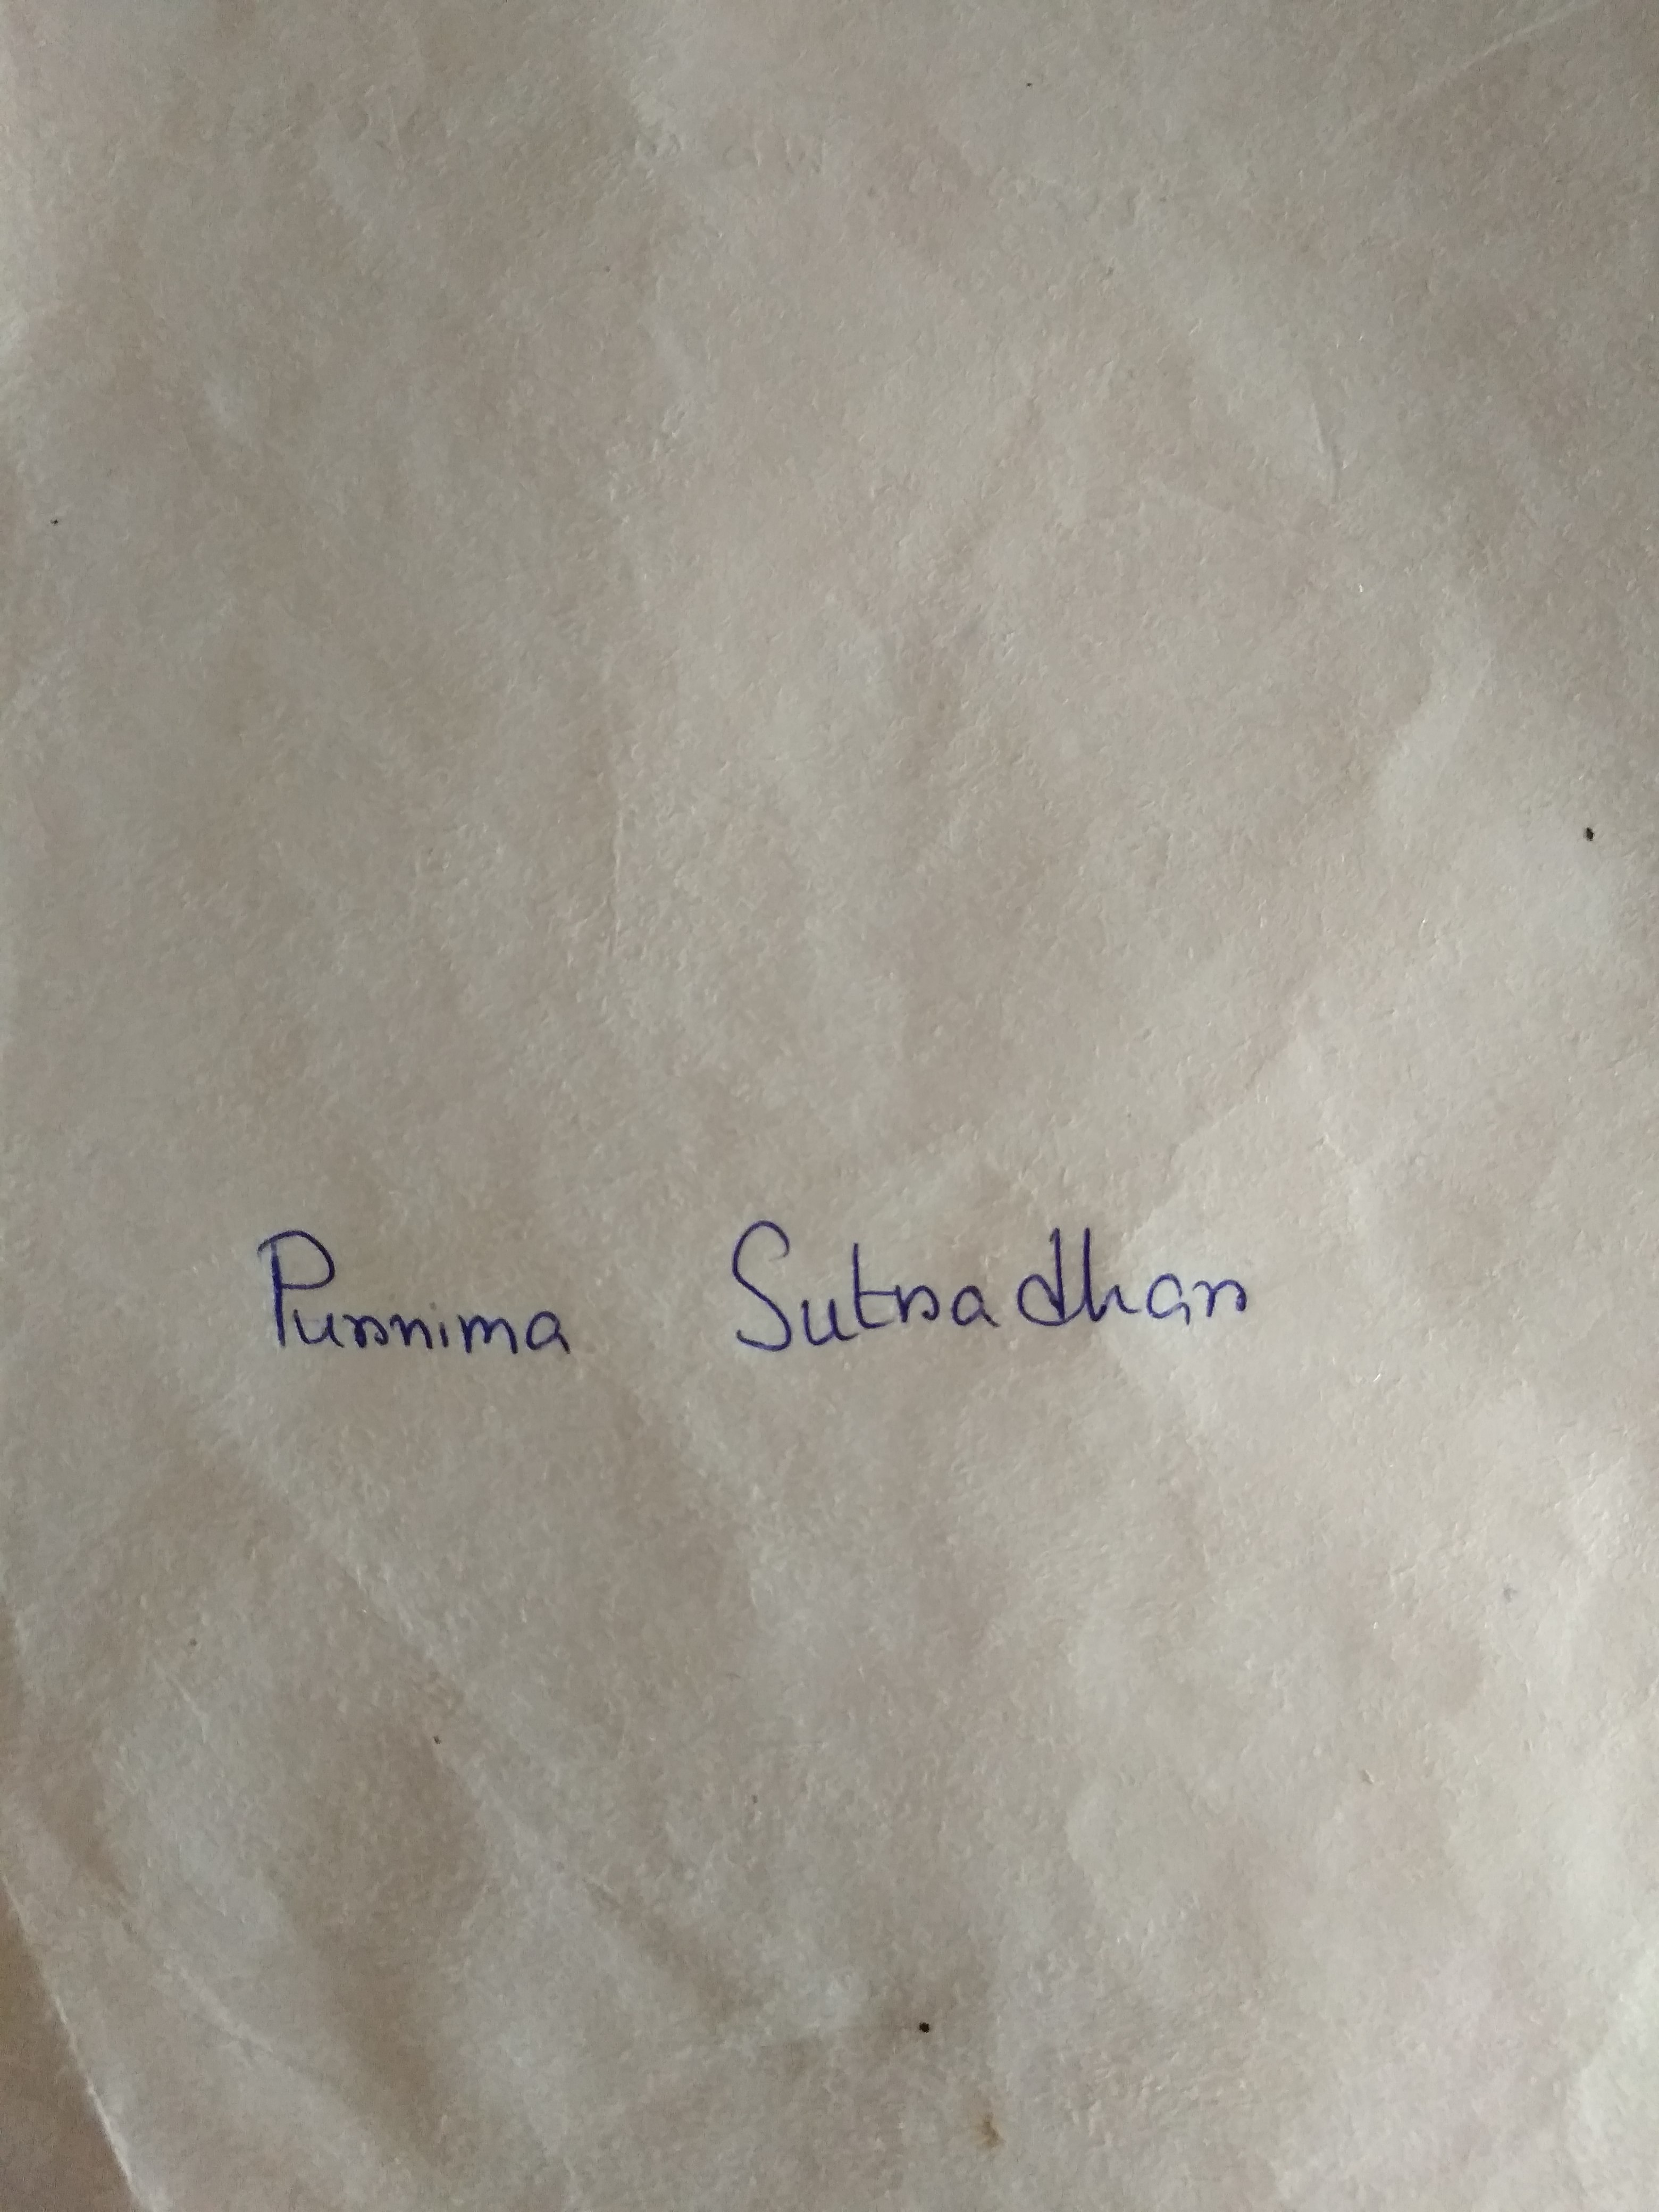 Purnima Sutradhar